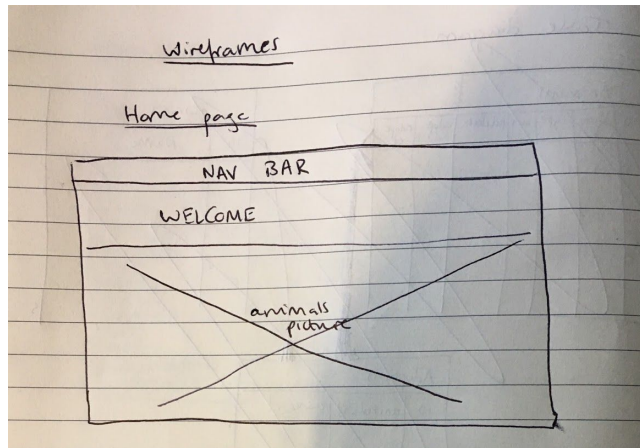 Wireframes
Home page
NAV BAR
WELCOME
animals
picture